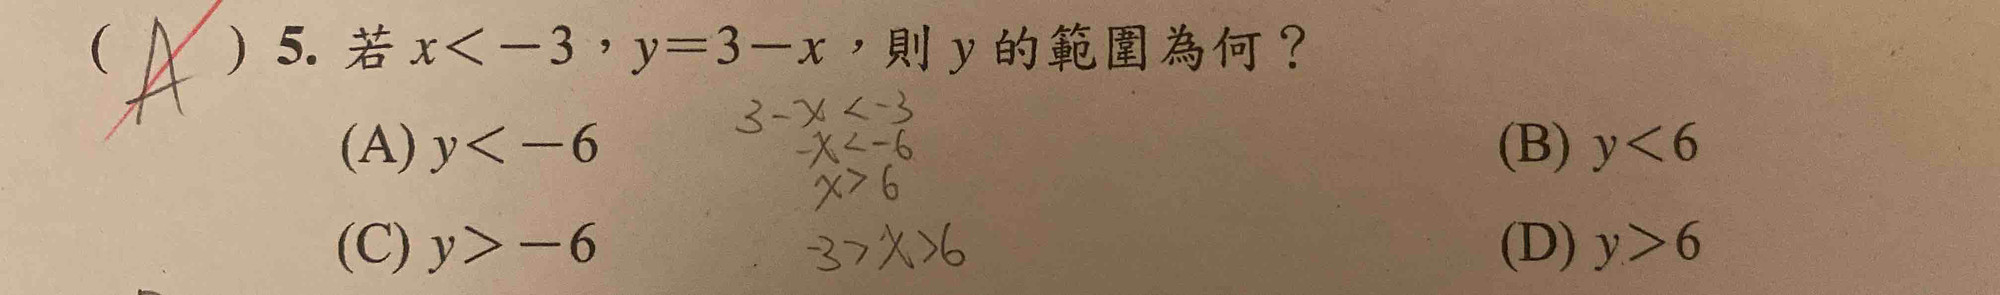 ( A ) 5. 若 x<-3，y=3-x，則 y 的範圍為何？
(A) y<-6
3-x<-3
-x<-6
x>6
(B) y<6
(C) y>-6
-3>x>6
(D) y>6